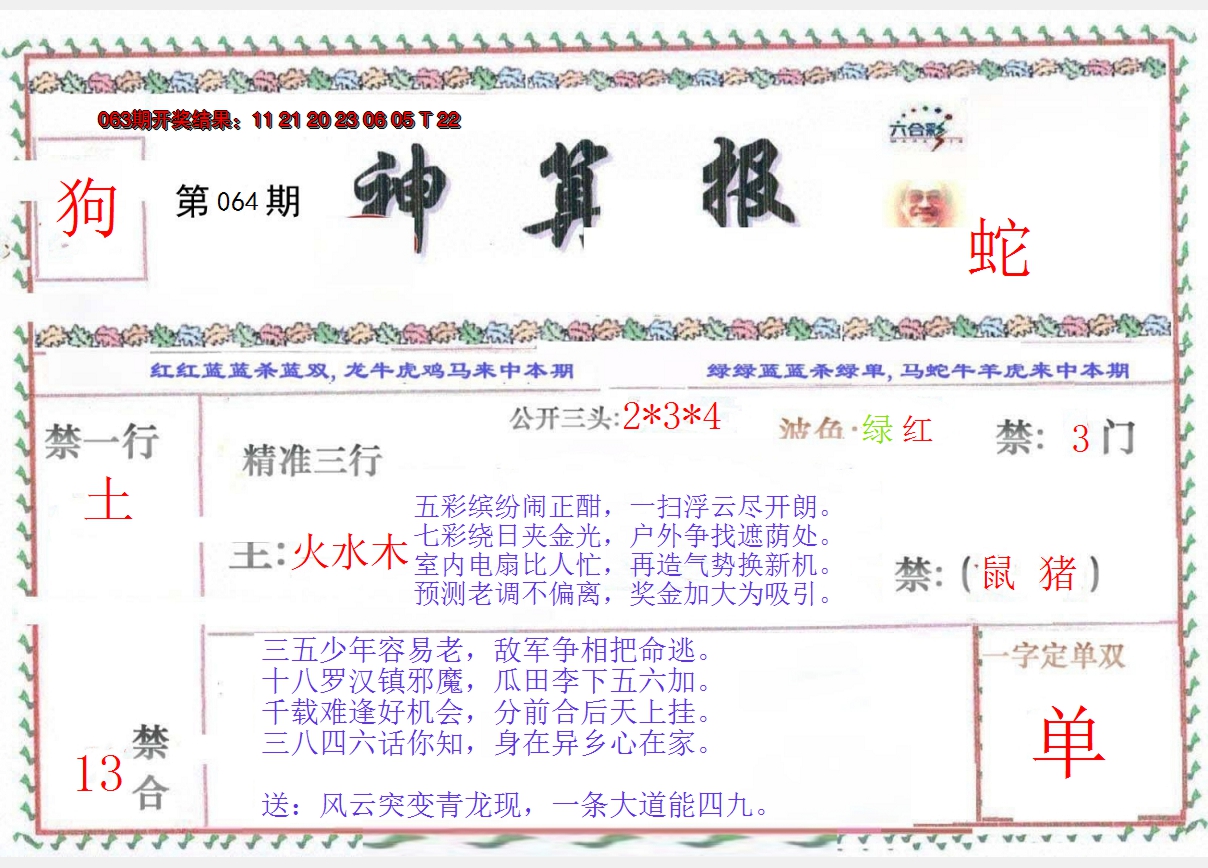 063期开奖结果：11 21 20 23 06 05 T 22
六合彩
狗
第 064 期
神算报
蛇
红红蓝蓝杀蓝双,龙牛虎鸡马来中本期
绿绿蓝蓝杀绿单,马蛇牛羊虎来中本期
公开三头:2*3*4
波色·绿 红
禁：3 门
禁一行
土
精准三行
主:火水木
五彩缤纷闹正酣，一扫浮云尽开朗。
七彩绕日夹金光，户外争找遮荫处。
室内电扇比人忙，再造气势换新机。
预测老调不偏离，奖金加大为吸引。
禁:(鼠 猪)
三五少年容易老，敌军争相把命逃。
十八罗汉镇邪魔，瓜田李下五六加。
千载难逢好机会，分前合后天上挂。
三八四六话你知，身在异乡心在家。
送：风云突变青龙现，一条大道能四九。
13
禁合
一字定单双
单